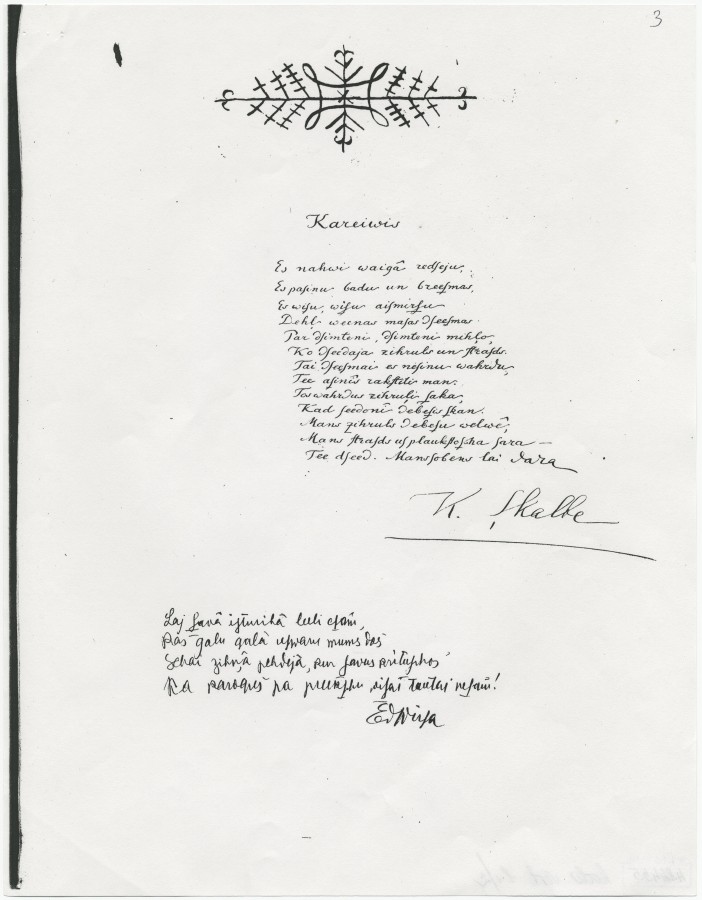 3
Kareiwis
Es nahwi waigâ redseju,
Es pasinu badu un breesmas,
Es wisu, wisu aismirsu
Dehļ weenas masas dseesmas
Par dsimteni, dsimteni mihļo,
Ko dseedaja zihruls un strasds.
Tai dseesmai es nesinu wahrdu,
Tee asinîs rakstiti man.
Tos wahrdus zihruļi saka,
Kad seedonî debesis skan.
Mans zihruls debesu welwê,
Mans strasds us plaukstoscha sara —
Tee dseed. Mans sobens lai dara
K. Skalbe
Laj savâ isturibâ leeli esam,
Kas galu galâ uswaru mums dos
Schai zihņâ pehdejâ, kur savus
Ka karogus pa preekschu wisai tautai nesam!
EdWirsa